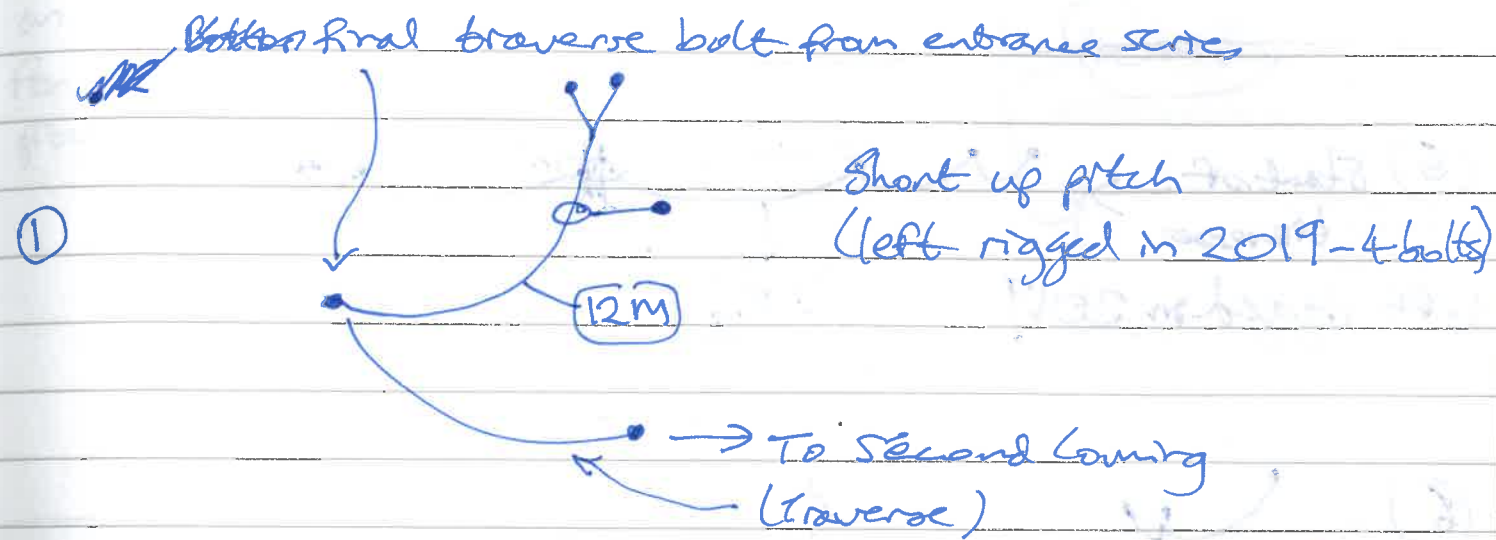 final traverse bolt from entrance series
Short up pitch
① (left rigged in 2019 - 4 bolts)
12m
→ To Second Coming
(Traverse)